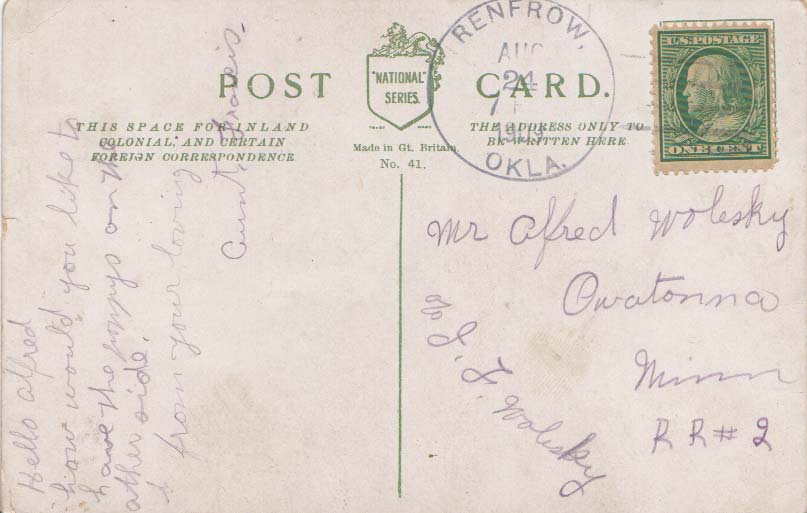 POST CARD.
"NATIONAL"
SERIES.
TRADE MARK
THIS SPACE FOR INLAND
COLONIAL, AND CERTAIN
FOREIGN CORRESPONDENCE
Made in Gt. Britain.
No. 41.
THE ADDRESS ONLY TO
BE WRITTEN HERE
RENFROW,
AUG
24
1909
OKLA.
U.S. POSTAGE
ONE CENT
Hello alfred
how would you like to
have the poppys on the
ather side.
from your loving
Aunt
Mr Alfred Wolesky
Owatonna
Minn
RR#2
% J. F. Wolesky